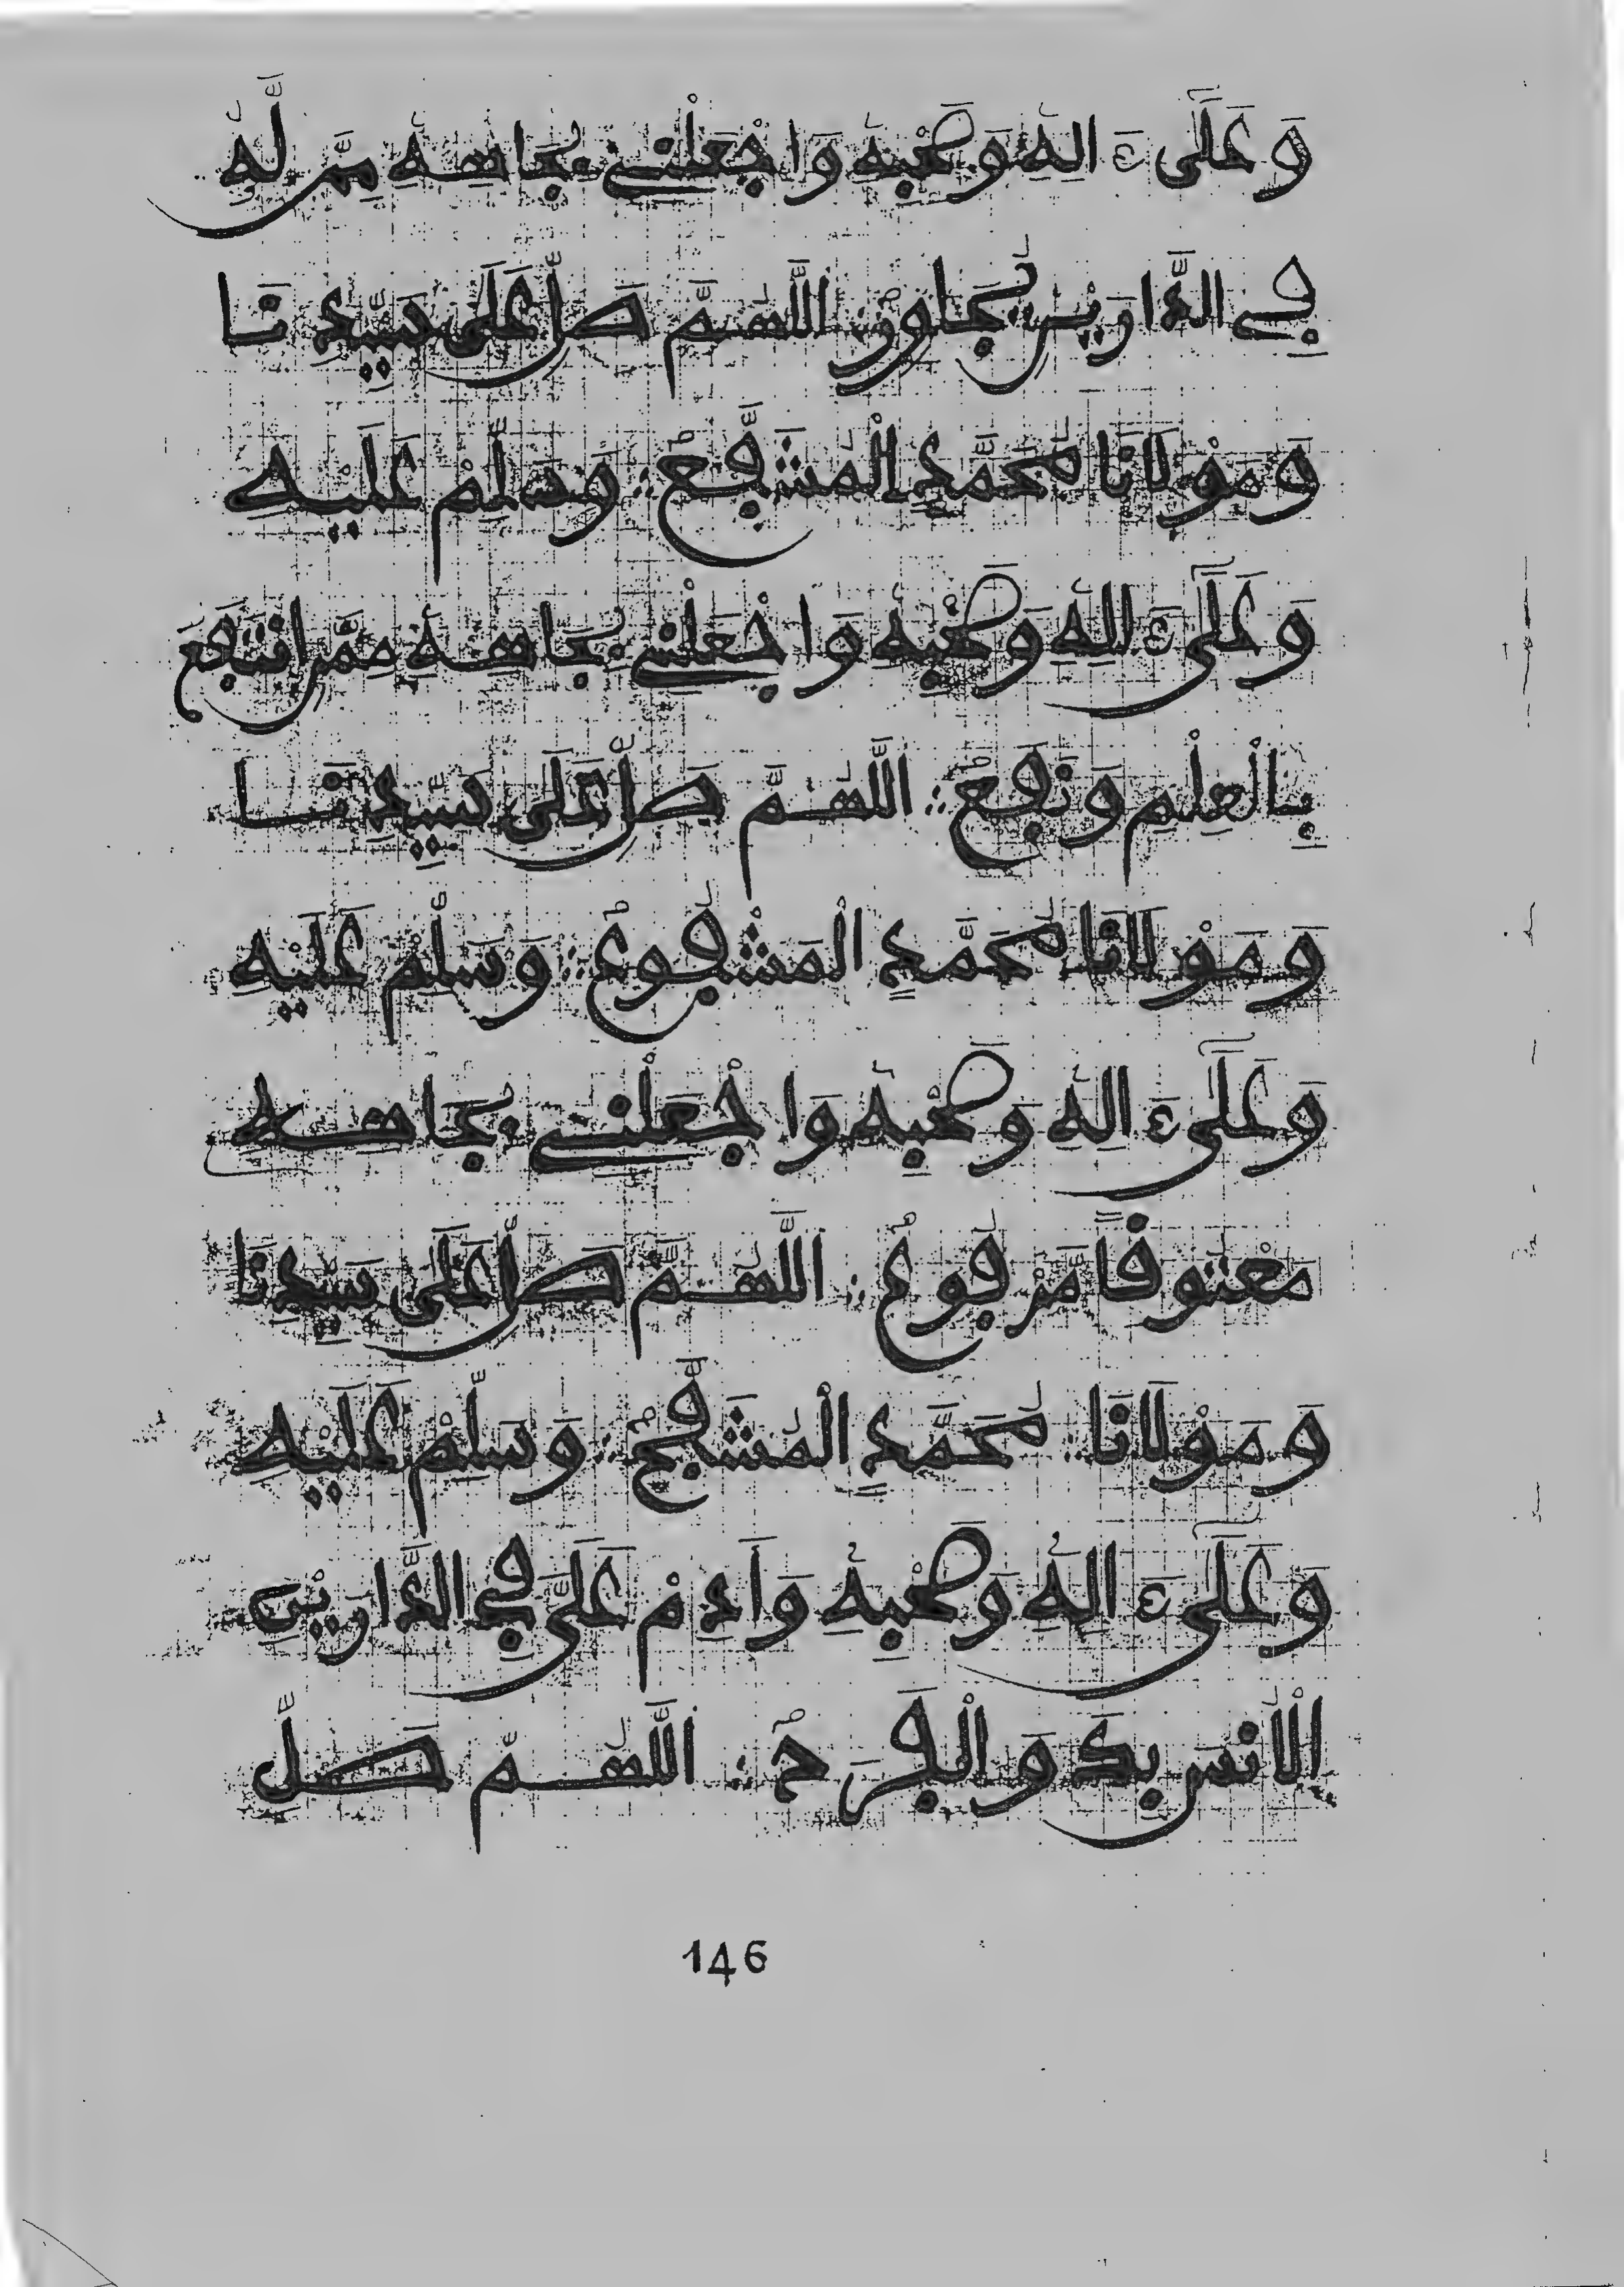 وَعَلَىٰ ءَالِهِ وَصَحْبِهِ وَاجْعَلْنِے بِجَاهِهِ مِمَّن لَّهُ
فِے الدَّارَيْنِ يُجَاوِرُ اللَّهُمَّ صَلِّ عَلَى سَيِّدِنَا
وَمَوْلَانَا مُحَمَّدٍ الْمُشَفَّعِ وَسَلِّمْ عَلَيْهِ
وَعَلَىٰ ءَالِهِ وَصَحْبِهِ وَاجْعَلْنِے بِجَاهِهِ مِمَّنِ انتَفَعَ
بِالْعِلْمِ وَنَفَعَ اللَّهُمَّ صَلِّ عَلَى سَيِّدِنَا
وَمَوْلَانَا مُحَمَّدٍ الْمَشْفُوعِ وَسَلِّمْ عَلَيْهِ
وَعَلَىٰ ءَالِهِ وَصَحْبِهِ وَاجْعَلْنِے بِجَاهِهِ
مَعْتُوقًا مَّرْفُوعُ اللَّهُمَّ صَلِّ عَلَى سَيِّدِنَا
وَمَوْلَانَا مُحَمَّدٍ الْمُشَفَّحِ وَسَلِّمْ عَلَيْهِ
وَعَلَىٰ ءَالِهِ وَصَحْبِهِ وَأَدِمْ عَلَيَّ فِے الدَّارَيْنِ
الْأُنسَ بِكَ وَالْفَرَحُ اللَّهُمَّ صَلِّ
146